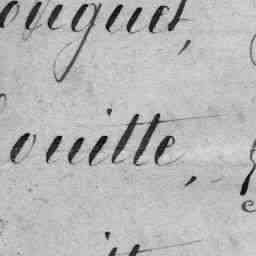 ouguet,
ouitte,